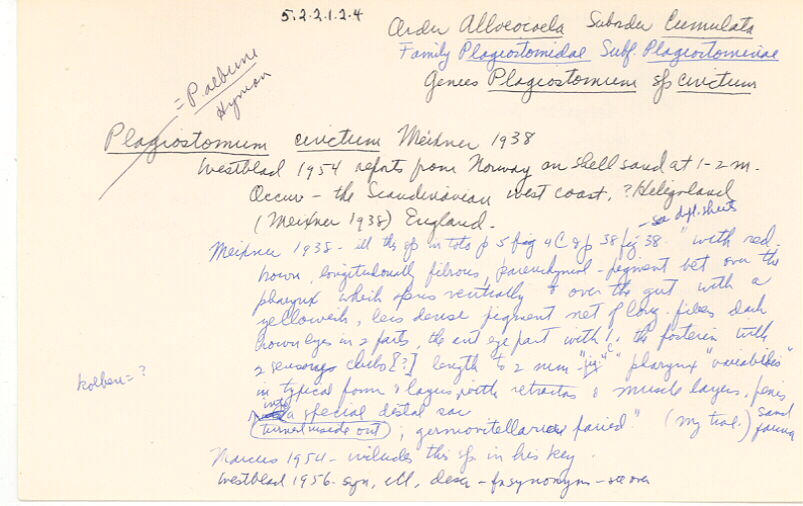 5.2.2.1.2.4
Order Alloeocoela Suborder Cumulata
Family Plagiostomidae Subf. Plagiostominae
Genus Plagiostomum sp cinctum
= P. album
Hyman
Plagiostomum cinctum Meixner 1938
Westblad 1954 reports from Norway on shell sand at 1-2 m.
Occurs - the Scandinavian west coast, ? Heligoland
(Meixner 1938) England.
- see dupl. sheets
Meixner 1938 - ill the sp in toto p 5 fig 4C & p 38 fig 38. "with red
brown, longitudinally fibrous, parenchymal-pigment bet over the
pharynx which opens ventrally & over the gut with a
yellowish, less dense pigment net of long. fibers dark
brown eyes in 2 parts, the ant eye part with 1, the posterior with
2 sensory clubs [?] length to 2 mm "fig" "C" pharynx "variabilis"
kolben = ?
in typical form & layers, with retractors & muscle layers, penis
into a special distal sac sand
(turned inside out) ; germovitellaries paired" (my tral.) fauna
Marcus 1954 - includes this sp in his key.
Westblad 1956 - syn, ill, descr - synonym - see over